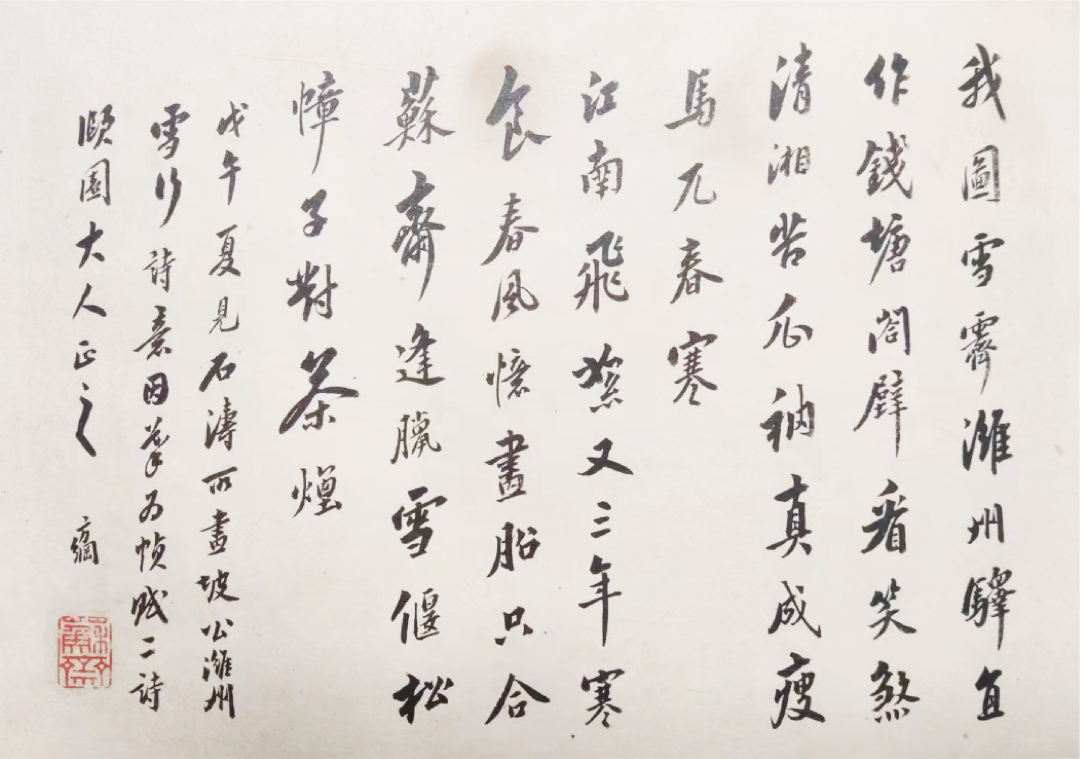 我圖雪霽濰州驛直
作錢塘閤壁看笑煞
清湘苦瓜衲真成瘦
馬兀春寒
江南飛絮又三年寒
食春風憶畫船只合
蘇齋逢臘雪偃松
幛子對茶煙
戊午夏見石濤所畫坡公濰州
雪行詩意因摹為幀賦二詩
頤園大人正之 方綱
蘇齋